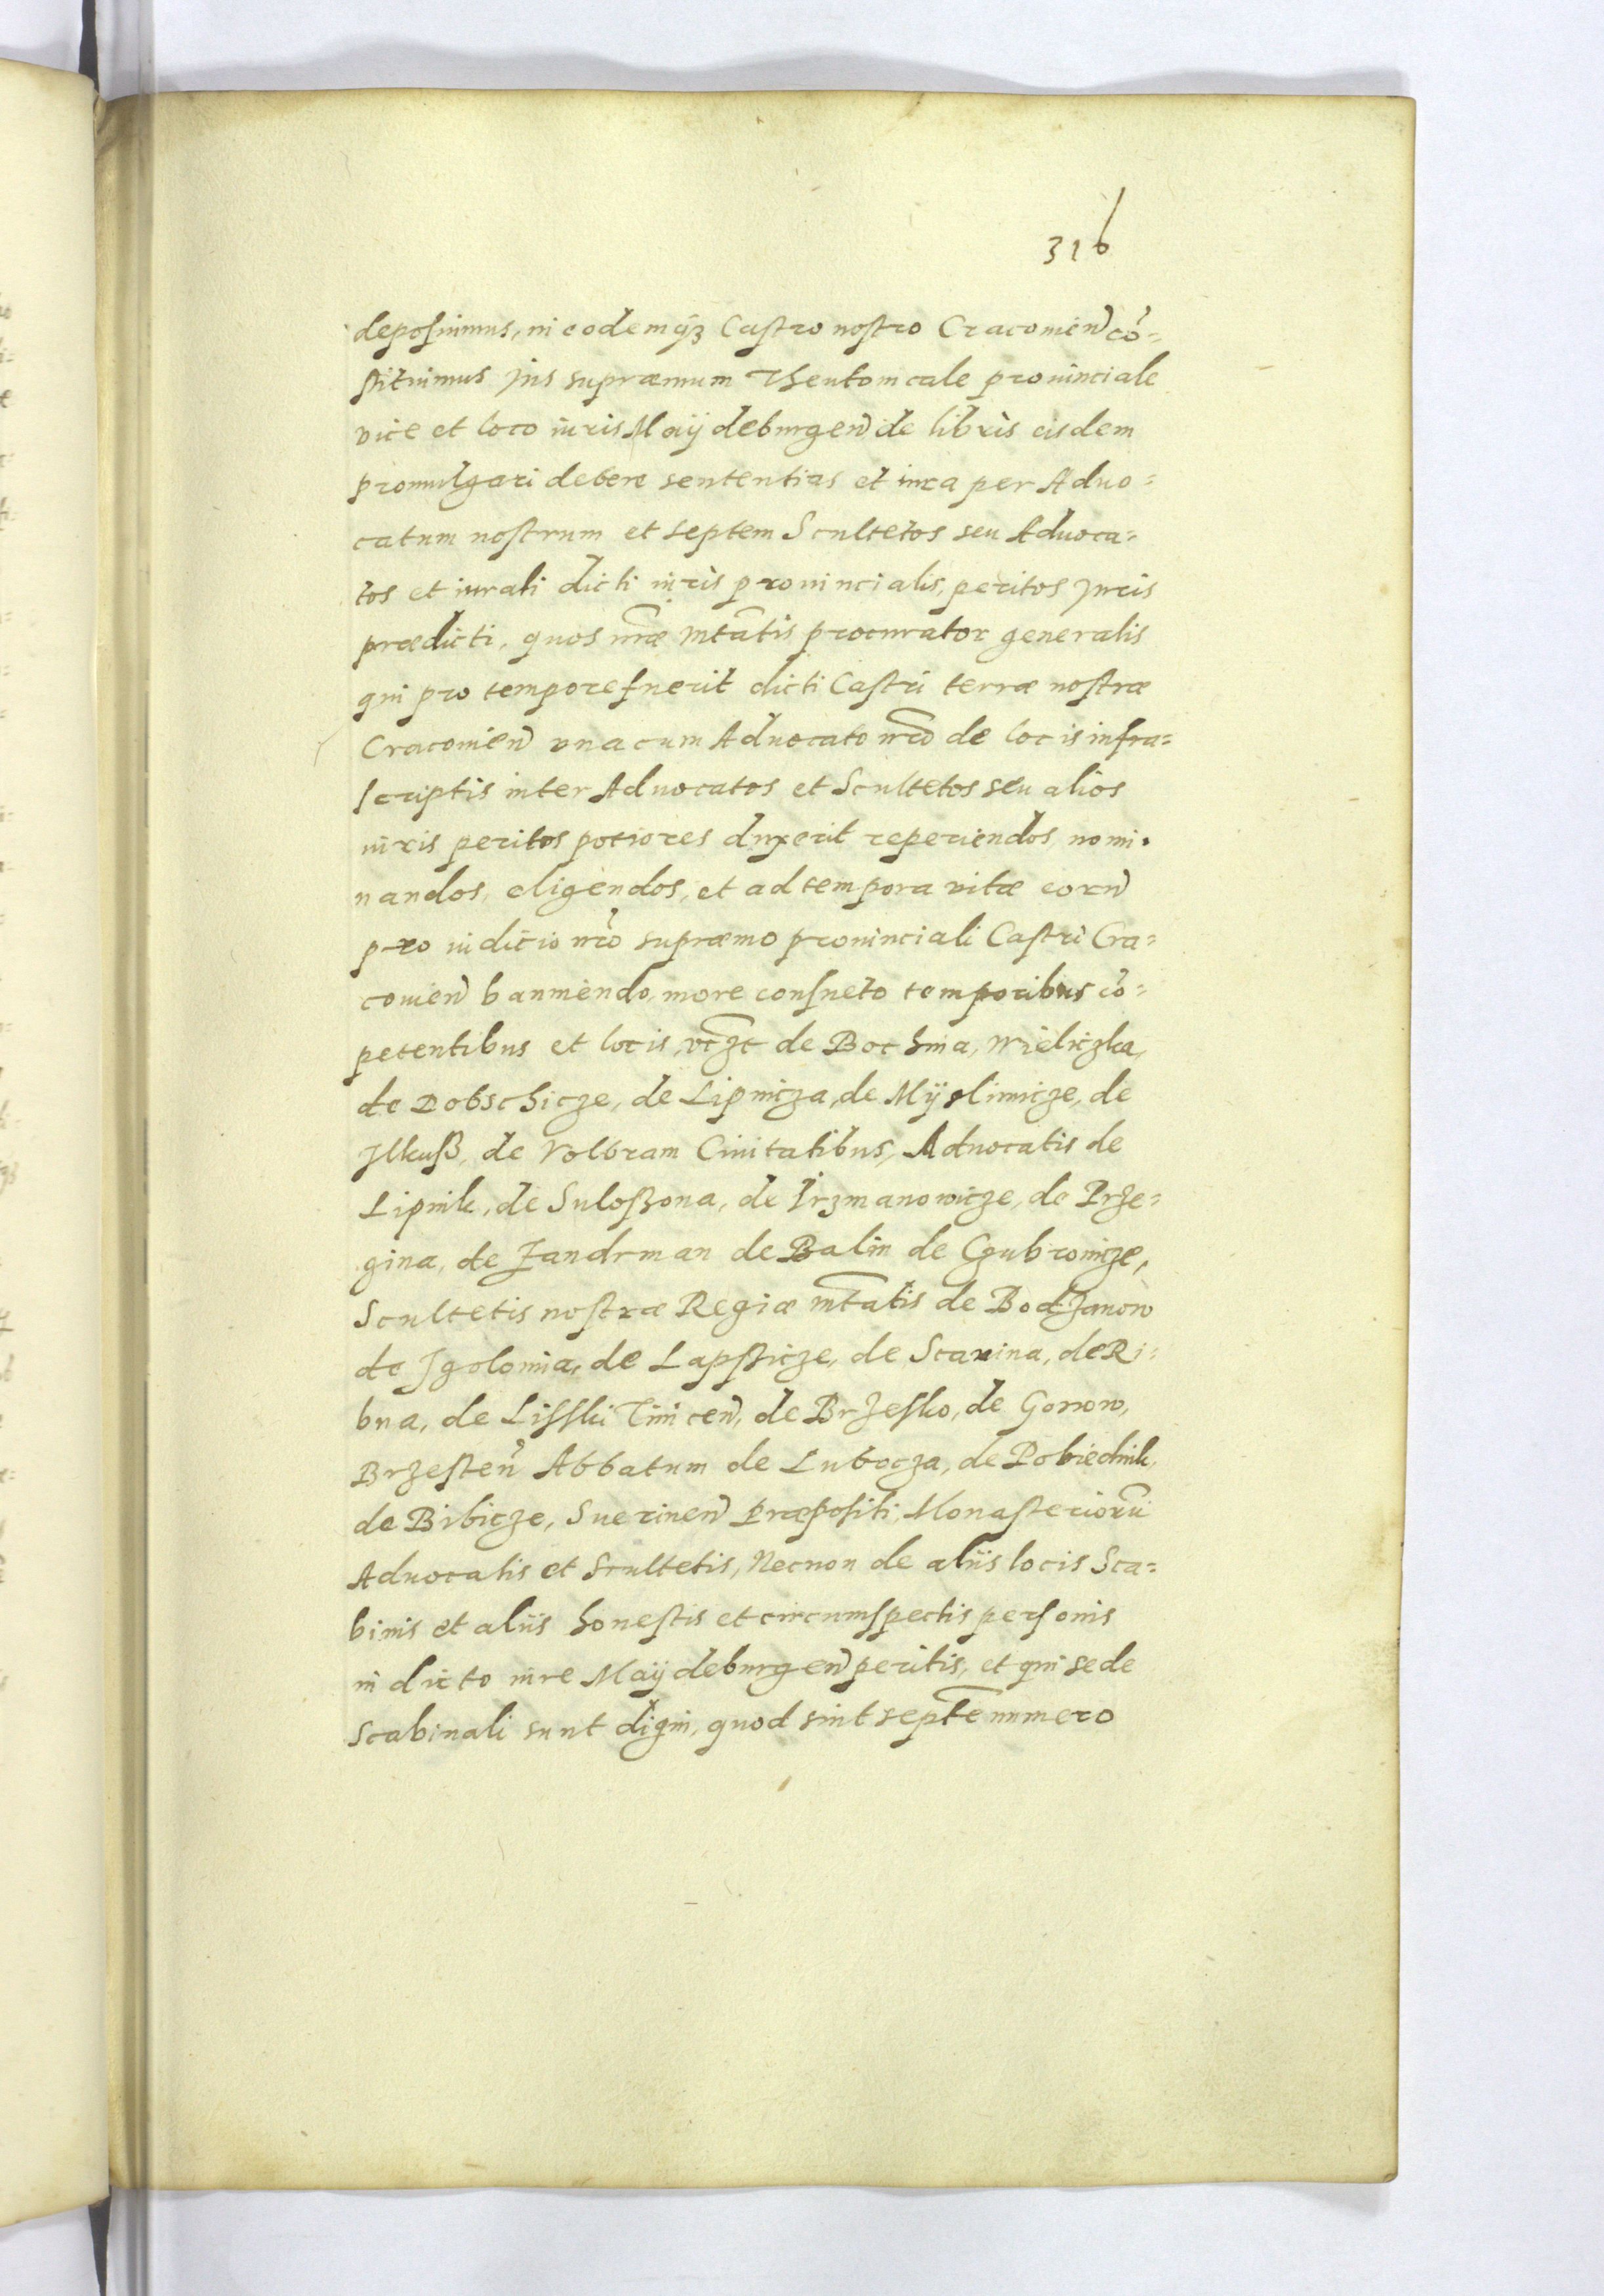 316
deposuimus, in eodemqꝫ Castro nostro Cracouien̄ cō=
stituimus Jus supræmum Theutonicale prouinciale
vice et loco iuris Maÿdeburgen̄ de libris eisdem
promulgari debere sententias et iura per Aduo=
catum nostrum et septem Scultetos seu Aduoca=
tos et iurati dicti iuris prouincialis, peritos Juris
prædicti, quos nr̄æ Mtātis procurator generalis
qui pro tempore fuerit dicti Castri terræ nostræ
Cracouien̄ vna cum Aduocato nr̄o de locis infra=
scriptis inter Aduocatos et Scultetos seu alios
iuris peritos potiores duxerit reperiendos, nomi=
nandos, eligendos, et ad tempora vitæ eorū
pro iudicio nr̄o supræmo prouinciali Castri Cra=
couien̄ banniendo, more consueto temporibus cō=
petentibus et locis, vcꝫt de Bochnia, Wieliczka,
de Dobschicze, de Lipnicza, de Mÿslimicze, de
Jlkuß, de Volbram Ciuitatibus, Aduocatis de
Lipnik, de Suloßona, de Jrzmanowicze, de Prze=
gina, de Zandrman de Balin de Czubrowicze,
Scultetis nostræ Regiæ mtātis de Bodzanow
de Jgolomia, de Lapßicze, de Scavina, de Ri=
bna, de Lisski Tinicen̄, de Brzesko, de Gorrow,
Brzesten̄ Abbatum de Lubocza, de Pobiednik,
de Bibicze, Suerinen̄ Præpositi, Monasteriorū
Aduocatis et Scultetis, Necnon de aliis locis Sca=
binis et aliis honestis et circumspectis personis
in dicto iure Maÿdeburgen̄ peritis, et qui sede
Scabinali sunt digni, quod sint septē numero